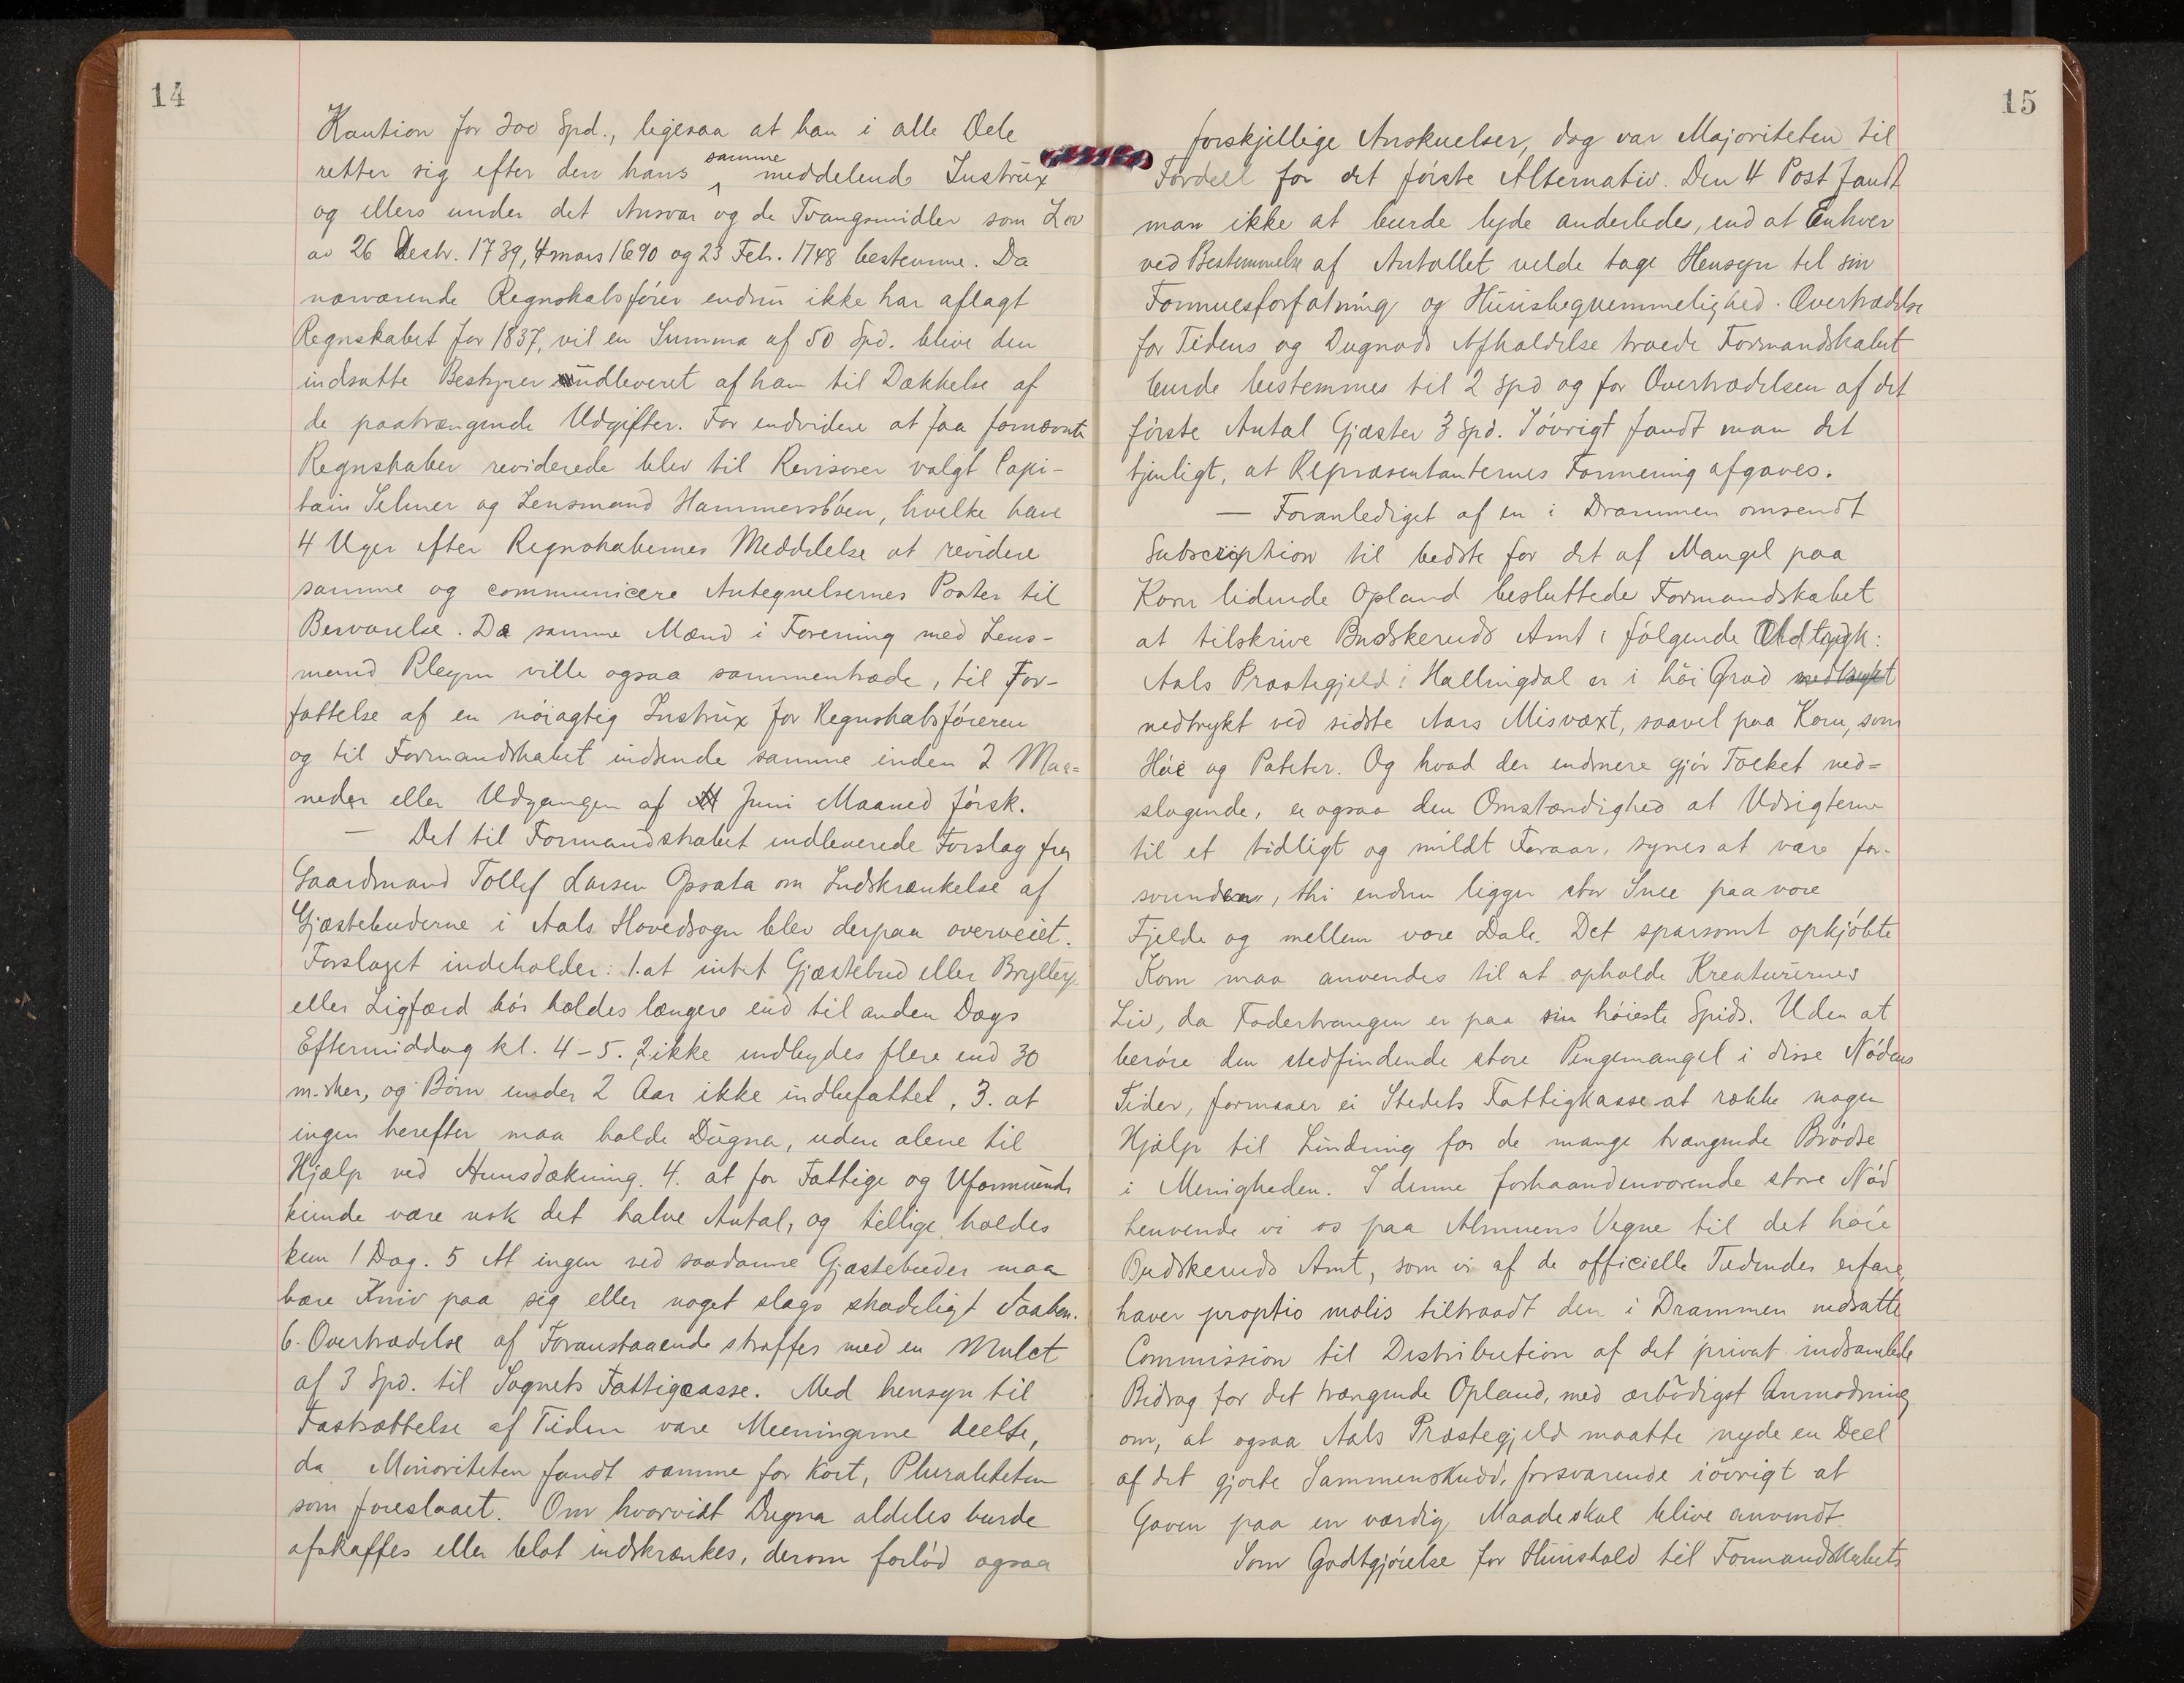 14
Kaution for 200 Spd., ligesaa at han i alle Dele
retter sig efter den hans samme meddelende Instrüx
og ellers under det Ansvar og de Tvangsmidler som Lov
av 26 Desbr. 1739, 4 mars 1690 og 23 Feb. 1748 bestemme. Da
nærværende Regnskabsfører endnu ikke har aflagt
Regnskabet for 1837, vil en Summa af 50 Spd. blive den
indsatte Bestyrer indleveret af ham til Dækkelse af
de paatrængende Udgifter. For endvidere at faa fornævnte
Regnskaber reviderede blev til Revisorer valgt Capi-
tain Selmer og Lensmand Hammersböen, hvilke have
4 Uger efter Regnskabernes Meddelelse at revidere
samme og communicere Antegnelsernes Poster til
Besvarelse. De samme Mænd i Forening med Lens-
mand Pleym ville ogsaa sammentræde, til For-
fattelse af en nöiagtig Instrüx for Regnskabsföreren
og til Formandskabet indsende samme inden 2 Maa=
neder eller Udgangen af Juni Maaned försk.
— Det til Formandskabet indleverede Forslag fra
Gaardmand Tollef Larsen Opsata om Indskrænkelse af
Gjæstebuderne i Aals Hovedsogn blev derpaa overveiet.
Forslaget indeholder: 1. at intet Gjæstebud eller Bryllup
eller Ligfærd bör holdes længere end til anden Dags
Eftermiddag kl. 4-5. 2 ikke indbydes flere end 30
m.sker, og Börn under 2 Aar ikke indbefattet, 3. at
ingen herefter maa holde Dügna, uden alene til
Hjælp ved Huusdækning. 4. at for Fattige og Uformuende
kunde være nok det halve Antal, og tillige holdes
kun 1 Dag. 5 At ingen ved saadanne Gjæstebuder maa
bære Kniv paa sig eller noget slags skadeligt Vaaben.
6. Overtrædelse af Foranstaaende straffes med en Mulct
af 3 Spd. til Sognets Fattigcasse. Med hensyn til
Fastsættelse af Tiden vare Meeningerne deelte,
da Minoriteten fandt samme for kort, Pluraliteten
som foreslaaet. Om hvorvidt Dugna aldeles burde
afskaffes eller blot indskrænkes, derom forlöd ogsaa
15
forskjellige Anskuelser, dog var Majoriteten til
Fordeel for det förste Alternativ. Den 4 Post fandt
man ikke at burde lyde anderledes, end at Enhver
ved Bestemmelse af Antallet vilde tage Hensyn til sin
Formuesforfatning og Huusbequemmelighed. Overtrædelse
for Tidens og Dugnads Afholdelse troede Formandskabet
burde bestemmes til 2 Spd og for Overtrædelsen af det
förste Antal Gjæster 3 Spd. Iövrigt fandt man det
tjenligt, at Repræsentanternes Formening afgaves.
— Foranlediget af en i Drammen omsendt
Subscription til bedste for det af Mangel paa
Korn lidende Opland besluttede Formandskabet
at tilskrive Budskeruds Amt i fölgende Udtryk:
Aals Præstegjeld i Hallingdal er i höi Grad nedtrykt
nedtrykt ved sidste Aars Misvæxt, saavel paa Korn, som
Höe og Poteter. Og hvad der endmere gjör Folket ned=
slagende, er ogsaa den Omstændighed at Udsigterne
til et tidligt og mildt Foraar, synes at være for-
svunden, thi endnu ligger stor Snee paa vore
Fjelde og mellem vore Dale. Det sparsomt opkjöbte
Korn maa anvendes til at opholde Kreaturernes
Liv, da Fodertrangen er paa sin höieste Spids. Uden at
beröre den stedfindende store Pengemangel i disse Nödens
Tider, formaaer ei Stedets Fattigkasse at række nogen
Hjælp til Lindring for de mange trængende Brödre
i Menigheden. I denne forhaandenværende store Nöd
henvende vi os paa Almuens Vegne til det höie
Budskeruds Amt, som vi af de officielle Tidender erfare,
haver proptio molis tiltraadt den i Drammen nedsatte
Commission til Distribution af det privat indsamlede
Bidrag for det trængende Opland, med ærbödigst Anmodning
om, at ogsaa Aals Præstegjeld maatte nyde en Deel
af det gjorte Sammenskudd, forsvarende iövrigt at
Gaven paa en værdig Maade skal blive anvendt.
Som Godtgjörelse for Huushold til Formandskabets